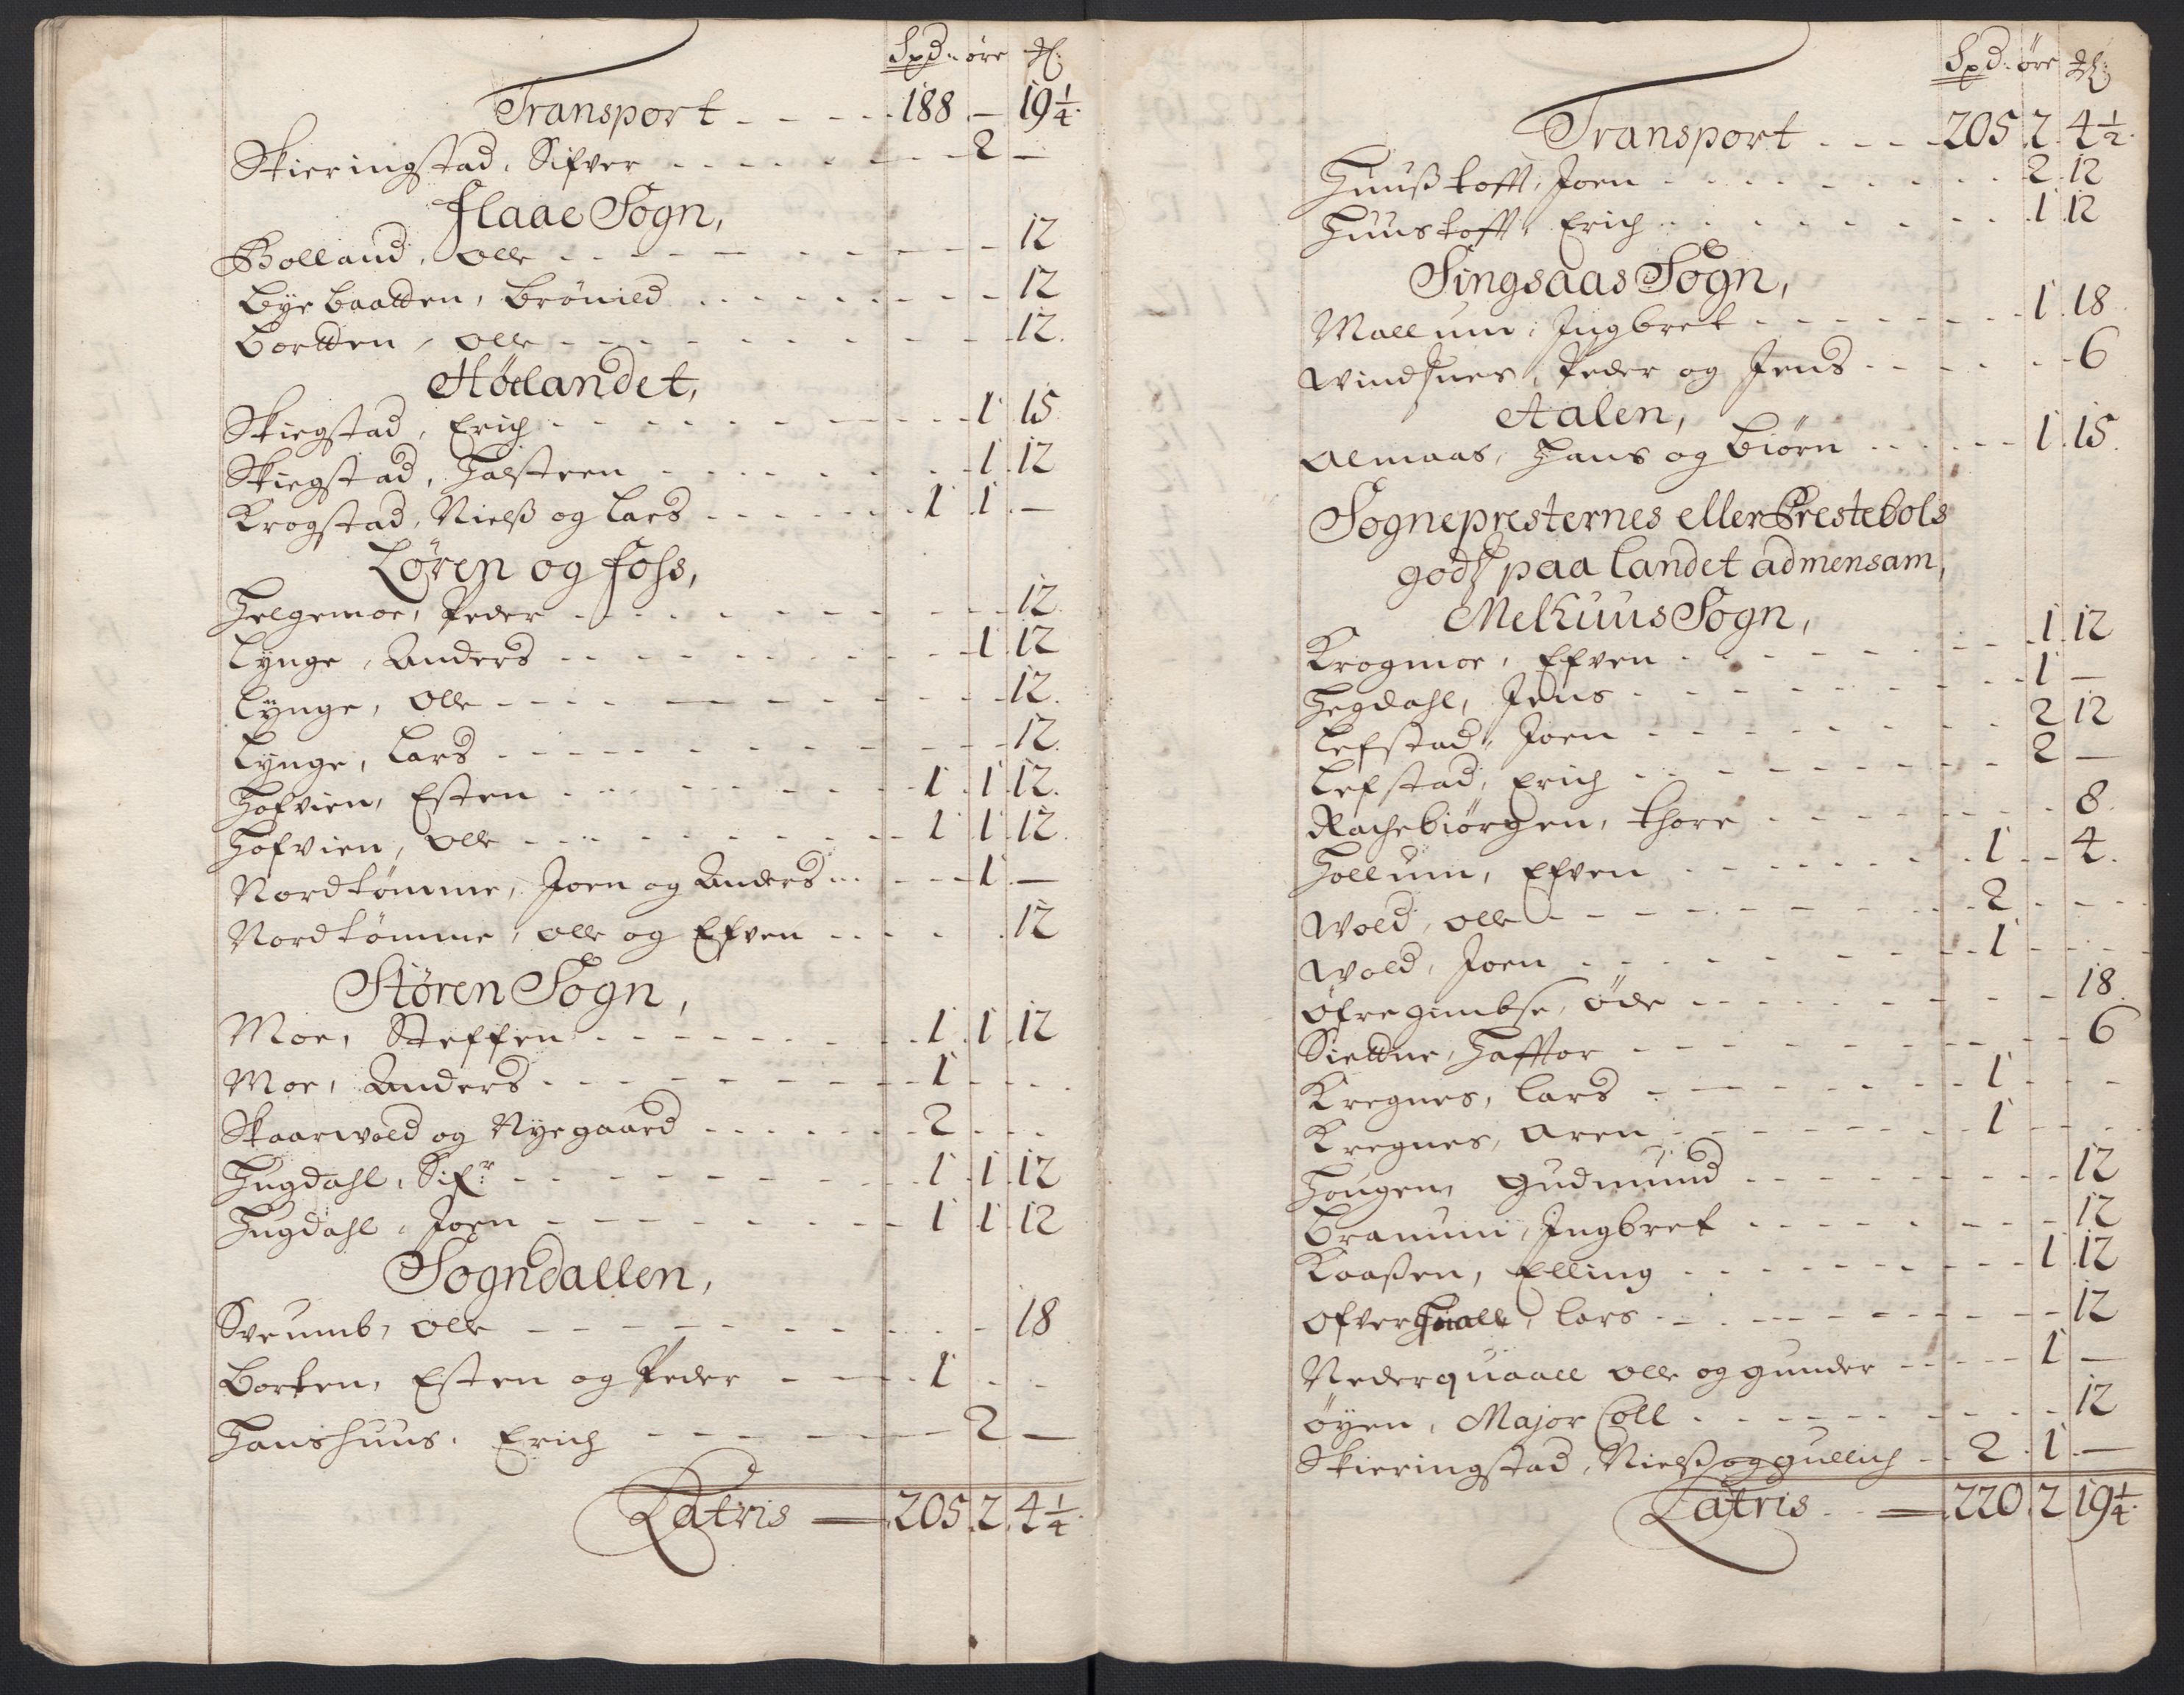 Spd. øre ₰:
Transport - - - - - 188 - 19 1/4
Skieringstad, Sifver - - - - 2 -
Flaae Sogn,
Bolland, Olle - - - - 12
Byebaatten, Brönild - - - - 12
Bortten, Olle - - - - 12.
Høelandet,
Skiegstad, Erich - - - - 1 15
Skiegstad, Halsteen - - - - 1. 12
Krogstad, Nielß og Lars - - - - 1 1. -
Løren og Foss,
Helgemoe, Peder - - - - 12.
Lÿnge, Anders - - - - 1. 12
Lÿnge, Olle - - - - 12.
Lÿnge, Lars - - - - 12.
Hofvien, Esten - - - - 1. 1. 12.
Hofvien, Olle - - - - 1 1. 12.
Nordtømme, Joen og Anders - - - - 1. -
Nordtømme, Olle og Efven - - - - 12
Støren Sogn,
Moe, Steffen - - - - 1. 1. 12
Moe, Anders - - - - 1 - - -
Skaarvold og Nyegaard - - - - 2 - -
Hugdahl, Sifr: - - - - 1 1. 12
Hugdahl, Joen - - - - 1 1. 12
Sogndallen,
Sveumb, Olle - - - - 18
Borten, Esten og Peder - - - - 1 - -
Hanshuus, Erich - - - - 2 -
Latris - 205. 2. 4 1/4.
Spd. øre ₰:
Transport - - - - 205 2. 4 1/2.
Huuß tofft, Joen - - - - 2. 12
Huus tofft, Erich - - - - 1 12
Singsaas Sogn,
Mallum, Ingbret - - - - 1. 18
Windsnes, Peder og Jens - - - - 6
Aalen,
Almaas, Hans og Biørn - - - - 1. 15.
Sognepresternes eller Prestebols
gods paa Landet ad mensam,
Melhuus Sogn,
Krogmoe, Efven - - - - 1. 12
Hegdahl, Jens - - - - 1 -
Lefstad, Joen - - - - 2 12
Lefstad, Erich - - - - 2 -
Rachebiørgen, Thore - - - - 8.
Hollum, Efven - - - - 1 - - 4.
Wold, Olle - - - - 2 - - -
Wold, Joen - - - - 1 - - -
Øfre gimbse, Øde - - - - 18.
Siettne, Hafftor - - - - 6
Kregnes, Lars - - - - 1 - -
Kregnes, Aren - - - - 1 - - -
Hougen, Gudmund - - - - 12
Branum, Ingbret - - - - 12
Kaaßen, Elling - - - - 1. 12
Ofver Huall, Lars - - - - 12
Nederquaall Olle og gunder - - - - 1 -
Øyen, Major Coll - - - - 12
Skieringstad, Nielß og gullich - - 2 1. -
Latris - - 220. 2 19 1/4.